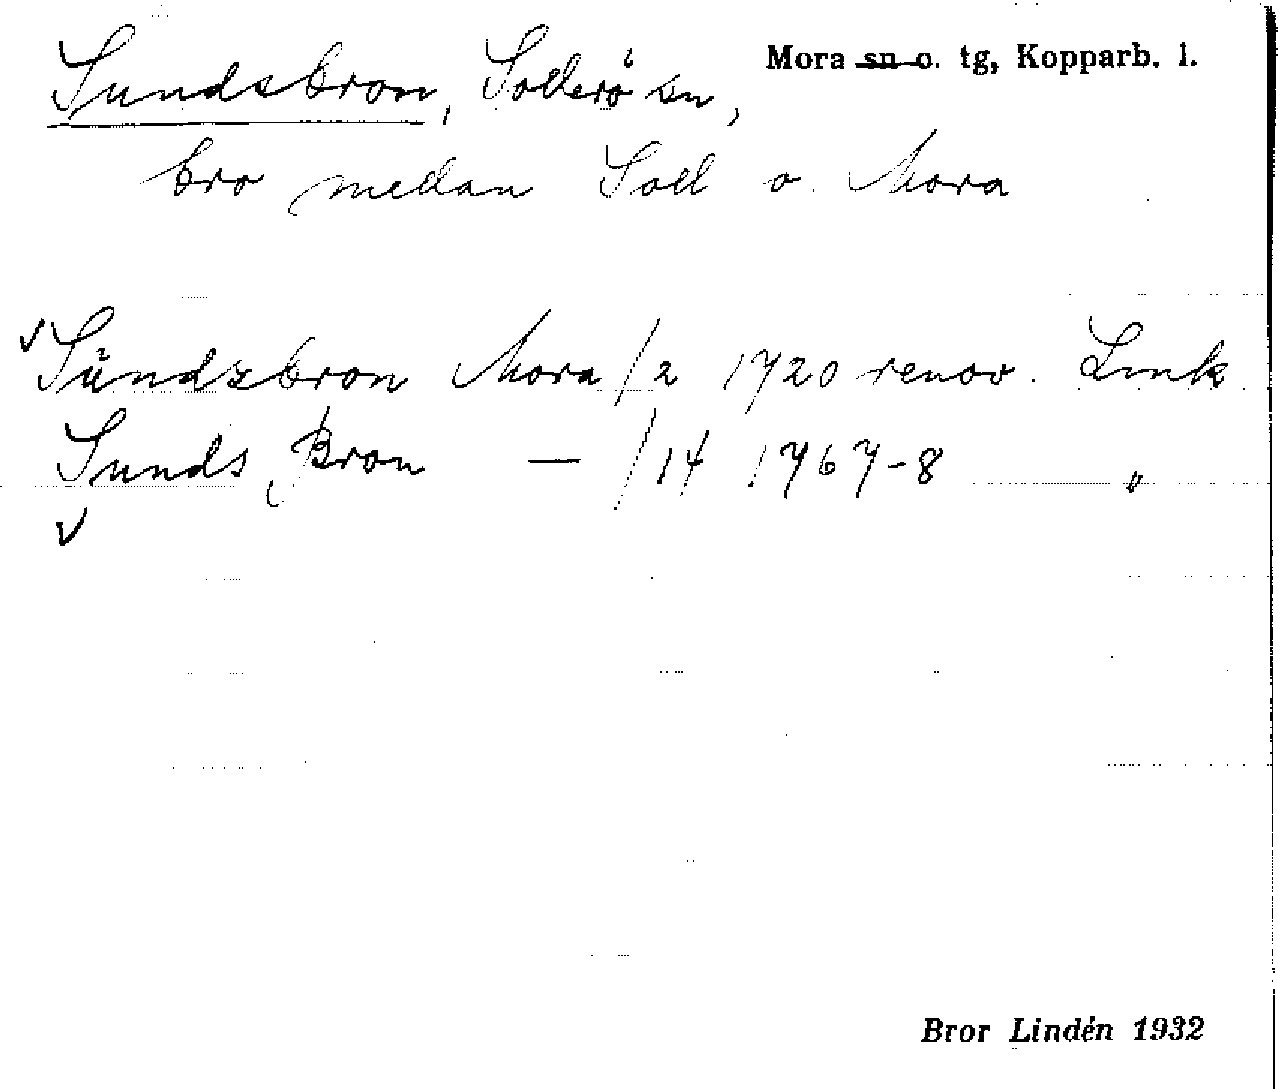 Sundsbron, Sollerö sn, Mora sn o. tg, Kopparb. l.
bro mellan Soll o. Mora
√ Sŭndzbron Mora /2 1720 renov. Lmk
Sunds Bron — /14 1767-8 "
√
Bror Lindén 1932